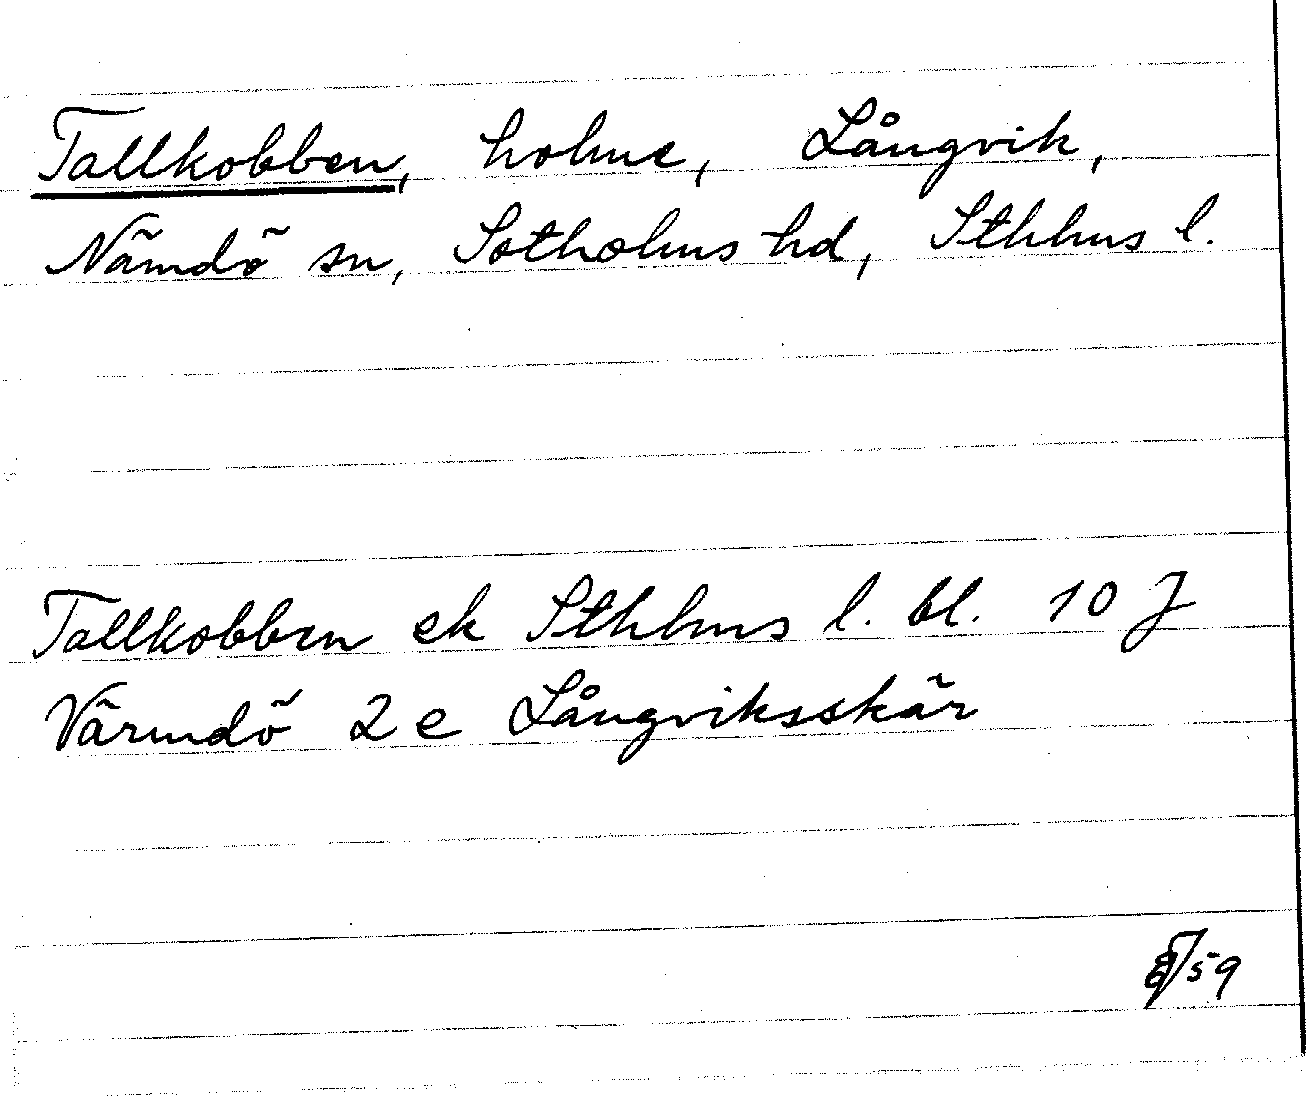 Tallkobben, holme, Långvik,
Nämdö sn, Sotholms hd, Sthlms l.
Tallkobben ek Sthlms l. bl. 10 J
Värmdö 2 e Långviksskär
59